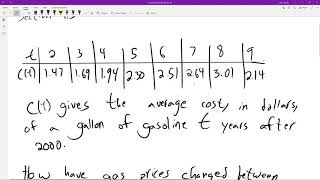 t 2 3 4 5 6 7 8 9
C(t) 1.47 1.69 1.94 2.30 2.51 2.64 3.01 2.14
C(t) gives the average cost, in dollars,
of a gallon of gasoline t years after
2000.
How have gas prices changed between